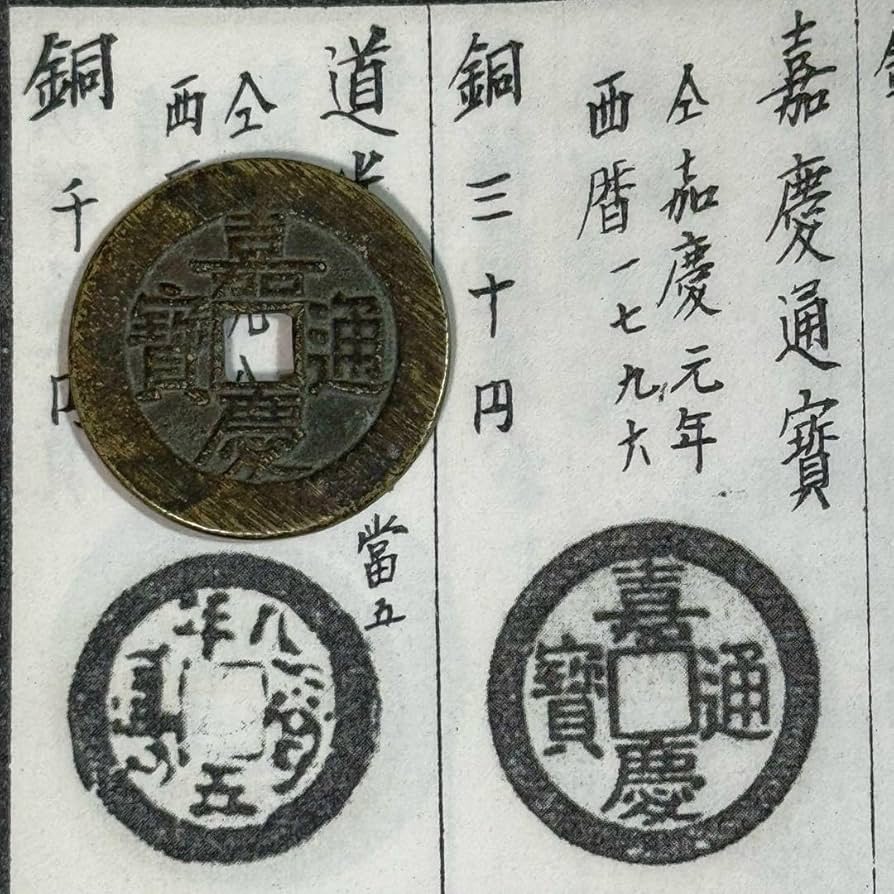 嘉慶通寳
仝嘉慶元年
西暦一七九六
銅三十円
嘉慶通寶
道
仝
西
銅千円
嘉慶通寶
當五
八年
五